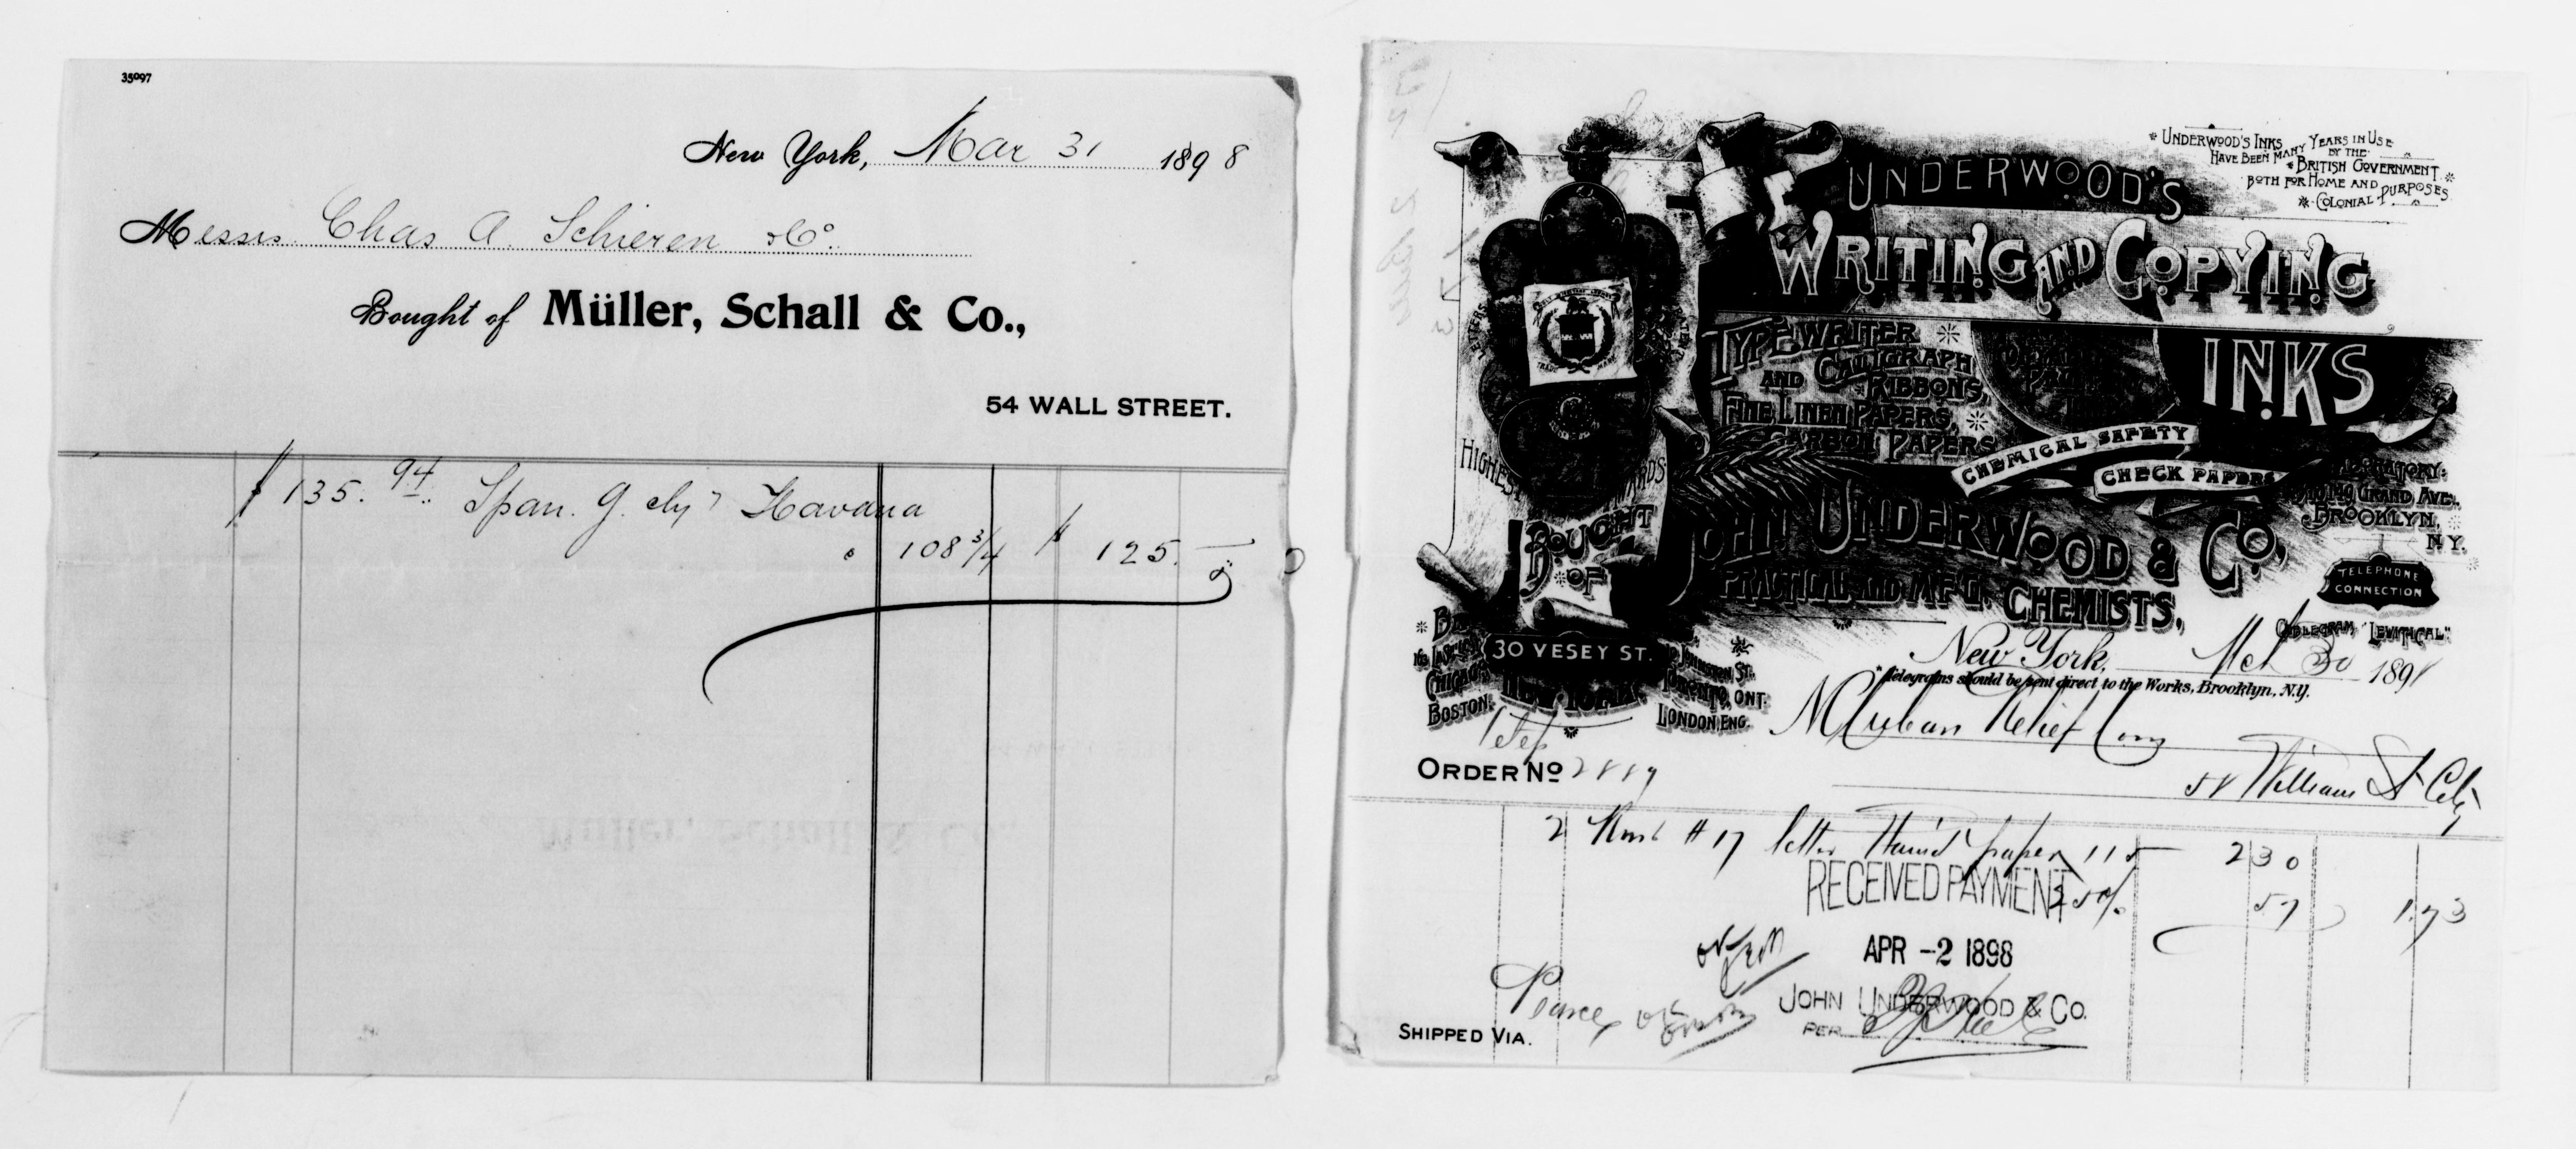 35097
New York, Mar 31 1898
Messrs. Chas A. Schieren & Co.
Bought of Müller, Schall & Co.,
54 WALL STREET.
$ 135.94 Span. G. Havana
108 3/4 $ 125.—
UNDERWOOD'S INKS
HAVE BEEN MANY YEARS IN USE
BY THE
BRITISH GOVERNMENT
BOTH FOR HOME AND
COLONIAL PURPOSES
UNDERWOOD'S
WRITING AND COPYING
INKS
TYPEWRITER
AND CALIGRAPH
RIBBONS,
FINE LINEN PAPERS,
CARBON PAPERS
CHEMICAL SAFETY
CHECK PAPERS
LETTERS PATENT
TRADE MARK
HIGHEST AWARDS
BOUGHT
OF
JOHN UNDERWOOD & CO,
PRACTICAL AND M'F'G. CHEMISTS,
GRAND AVE.
BROOKLYN,
N.Y.
TELEPHONE
CONNECTION
CABLEGRAM, "LEVITHICAL"
30 VESEY ST.
NEW YORK
CHICAGO
BOSTON.
JOHNSTON ST.
TORONTO, ONT.
LONDON, ENG.
New York, Mch 30 1898
Telegrams should be sent direct to the Works, Brooklyn, N.Y.
M Cuban Relief Com
58 William St City
ORDER No
2 # 17 letter paper 115 2 30
25% 57 1.73
RECEIVED PAYMENT
APR -2 1898
JOHN UNDERWOOD & CO.
PER
OK
OK
SHIPPED VIA.